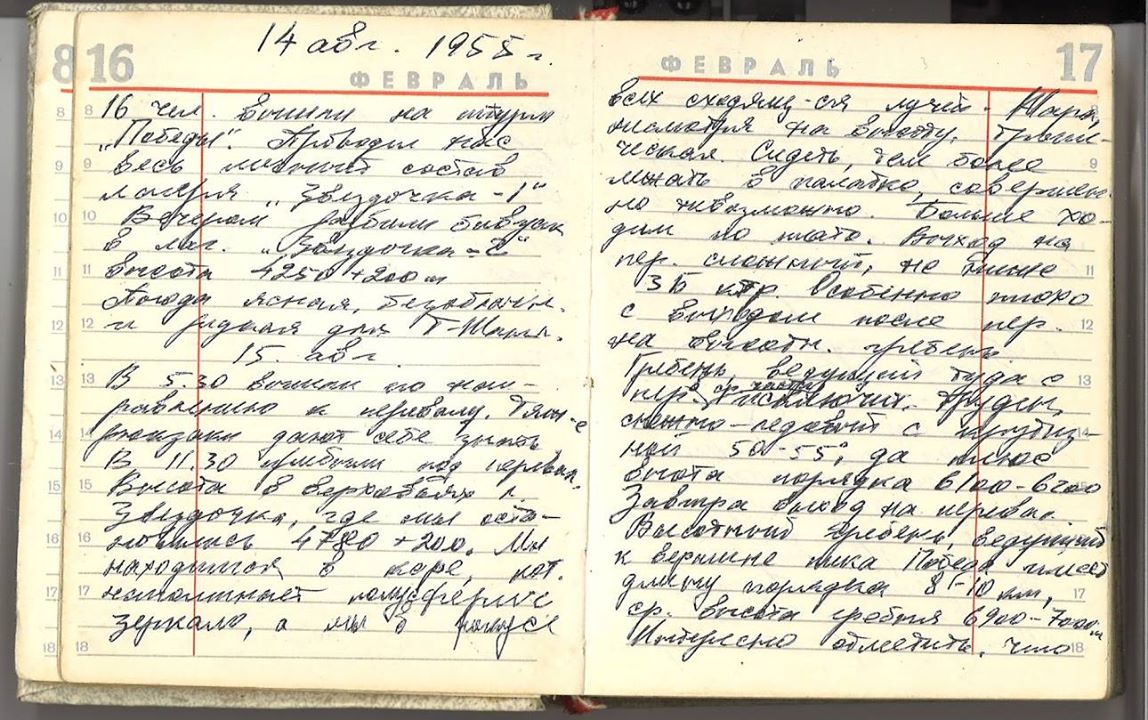 8 16
14 авг. 1955 г.
ФЕВРАЛЬ
16 чел. вышли на штурм
„Победы“. Проводил нас
весь личный состав
лагеря „Звездочка-1“
Вечером разбили бивуак
в лаг. „Звездочка-2“
высота 4250+200 м
Погода ясная, безоблачн.
и редкая для Т-Шаня.
15. авг
В 5.30 вышли по нап-
равлению к перевалу. Тяж-е
рюкзаки дают себе знать
В 11.30 прибыли под перевал.
Высота в верховьях г.
Звездочка, где мы оста-
новились 4780 +200. Мы
находимся в каре, кот.
напоминает полусферич
зеркало, а мы в фокусе
ФЕВРАЛЬ
17
всех сходящ-ся лучей. Жара,
несмотря на высоту, тропи-
ческая. Сидеть, тем более
лежать в палатке, совершен-
но невозможно. Больше хо-
дим по плато. Выход на
пер. сложный, не ниже
3Б ктр. Особенно плохо
с выходом после пер.
на высотн. гребень
Гребень, ведущий туда с
пер. ср. части исключит. труден,
снежно-ледовый с крутиз-
ной 50-55°, да плюс
высота порядка 6100-6200
Завтра выход на перевал.
Высотный гребень ведущий
к вершине пика Победа имеет
длину порядка 8-10 км,
ср. высота гребня 6900-7000 м
Интересно отметить, что
8 9 10 11 12 13 14 15 16 17 18
8 9 10 11 12 13 14 15 16 17 18
9 11 12 13 14 15 17 18